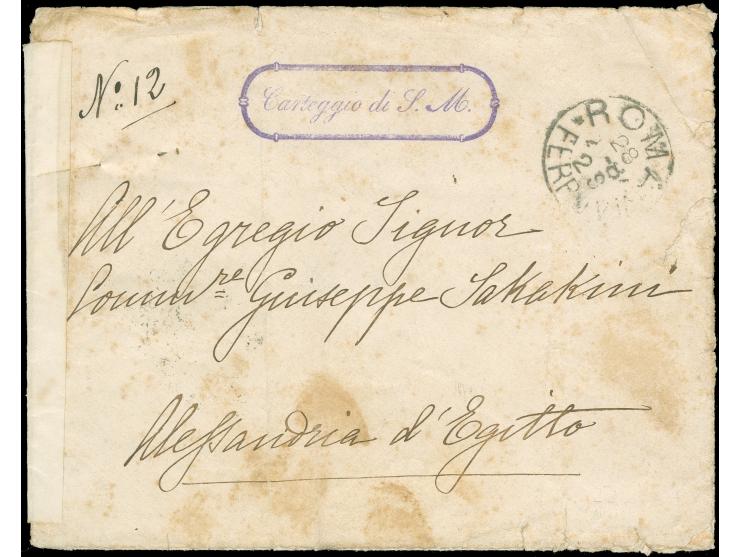 N.o 12
Carteggio di S. M.
ROMA
FERROVIA
28
12
All' Egregio Signor
Commre Giuseppe Sakakini
Alessandria d'Egitto